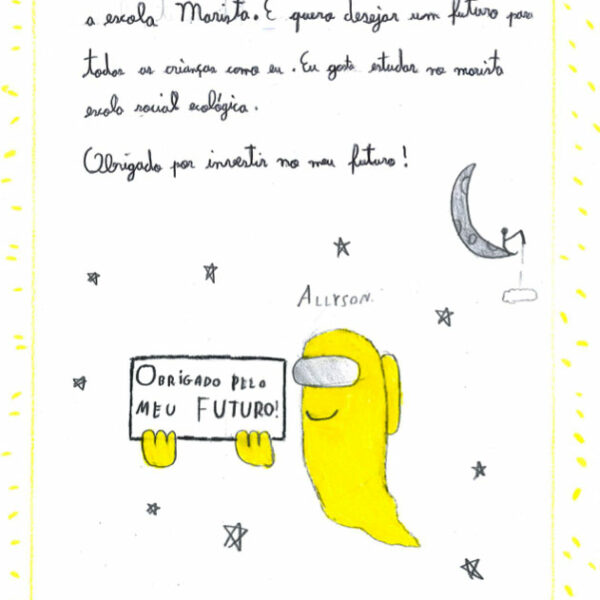 a escola Marista. E quero desejar um futuro para
todas as crianças como eu. Eu gosto estudar no marista
escola social ecológica.
Obrigado por investir no meu futuro!
ALLYSON.
OBRIGADO PELO
MEU FUTURO!